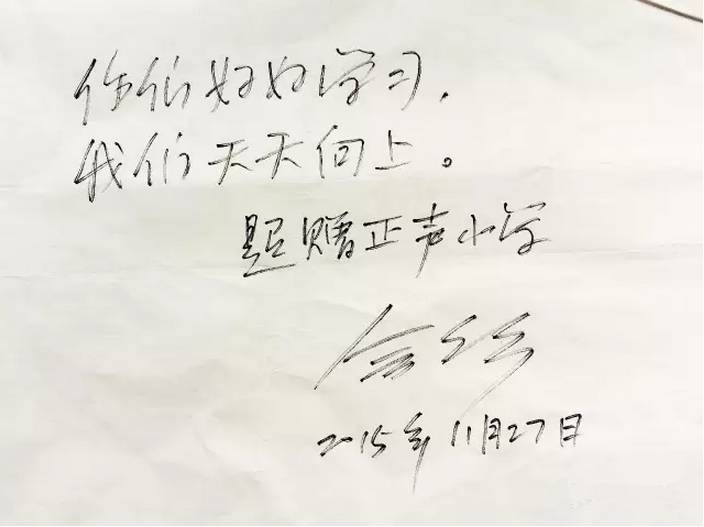 你们好好学习，
我们天天向上。
题赠正声小学
2015年11月27日